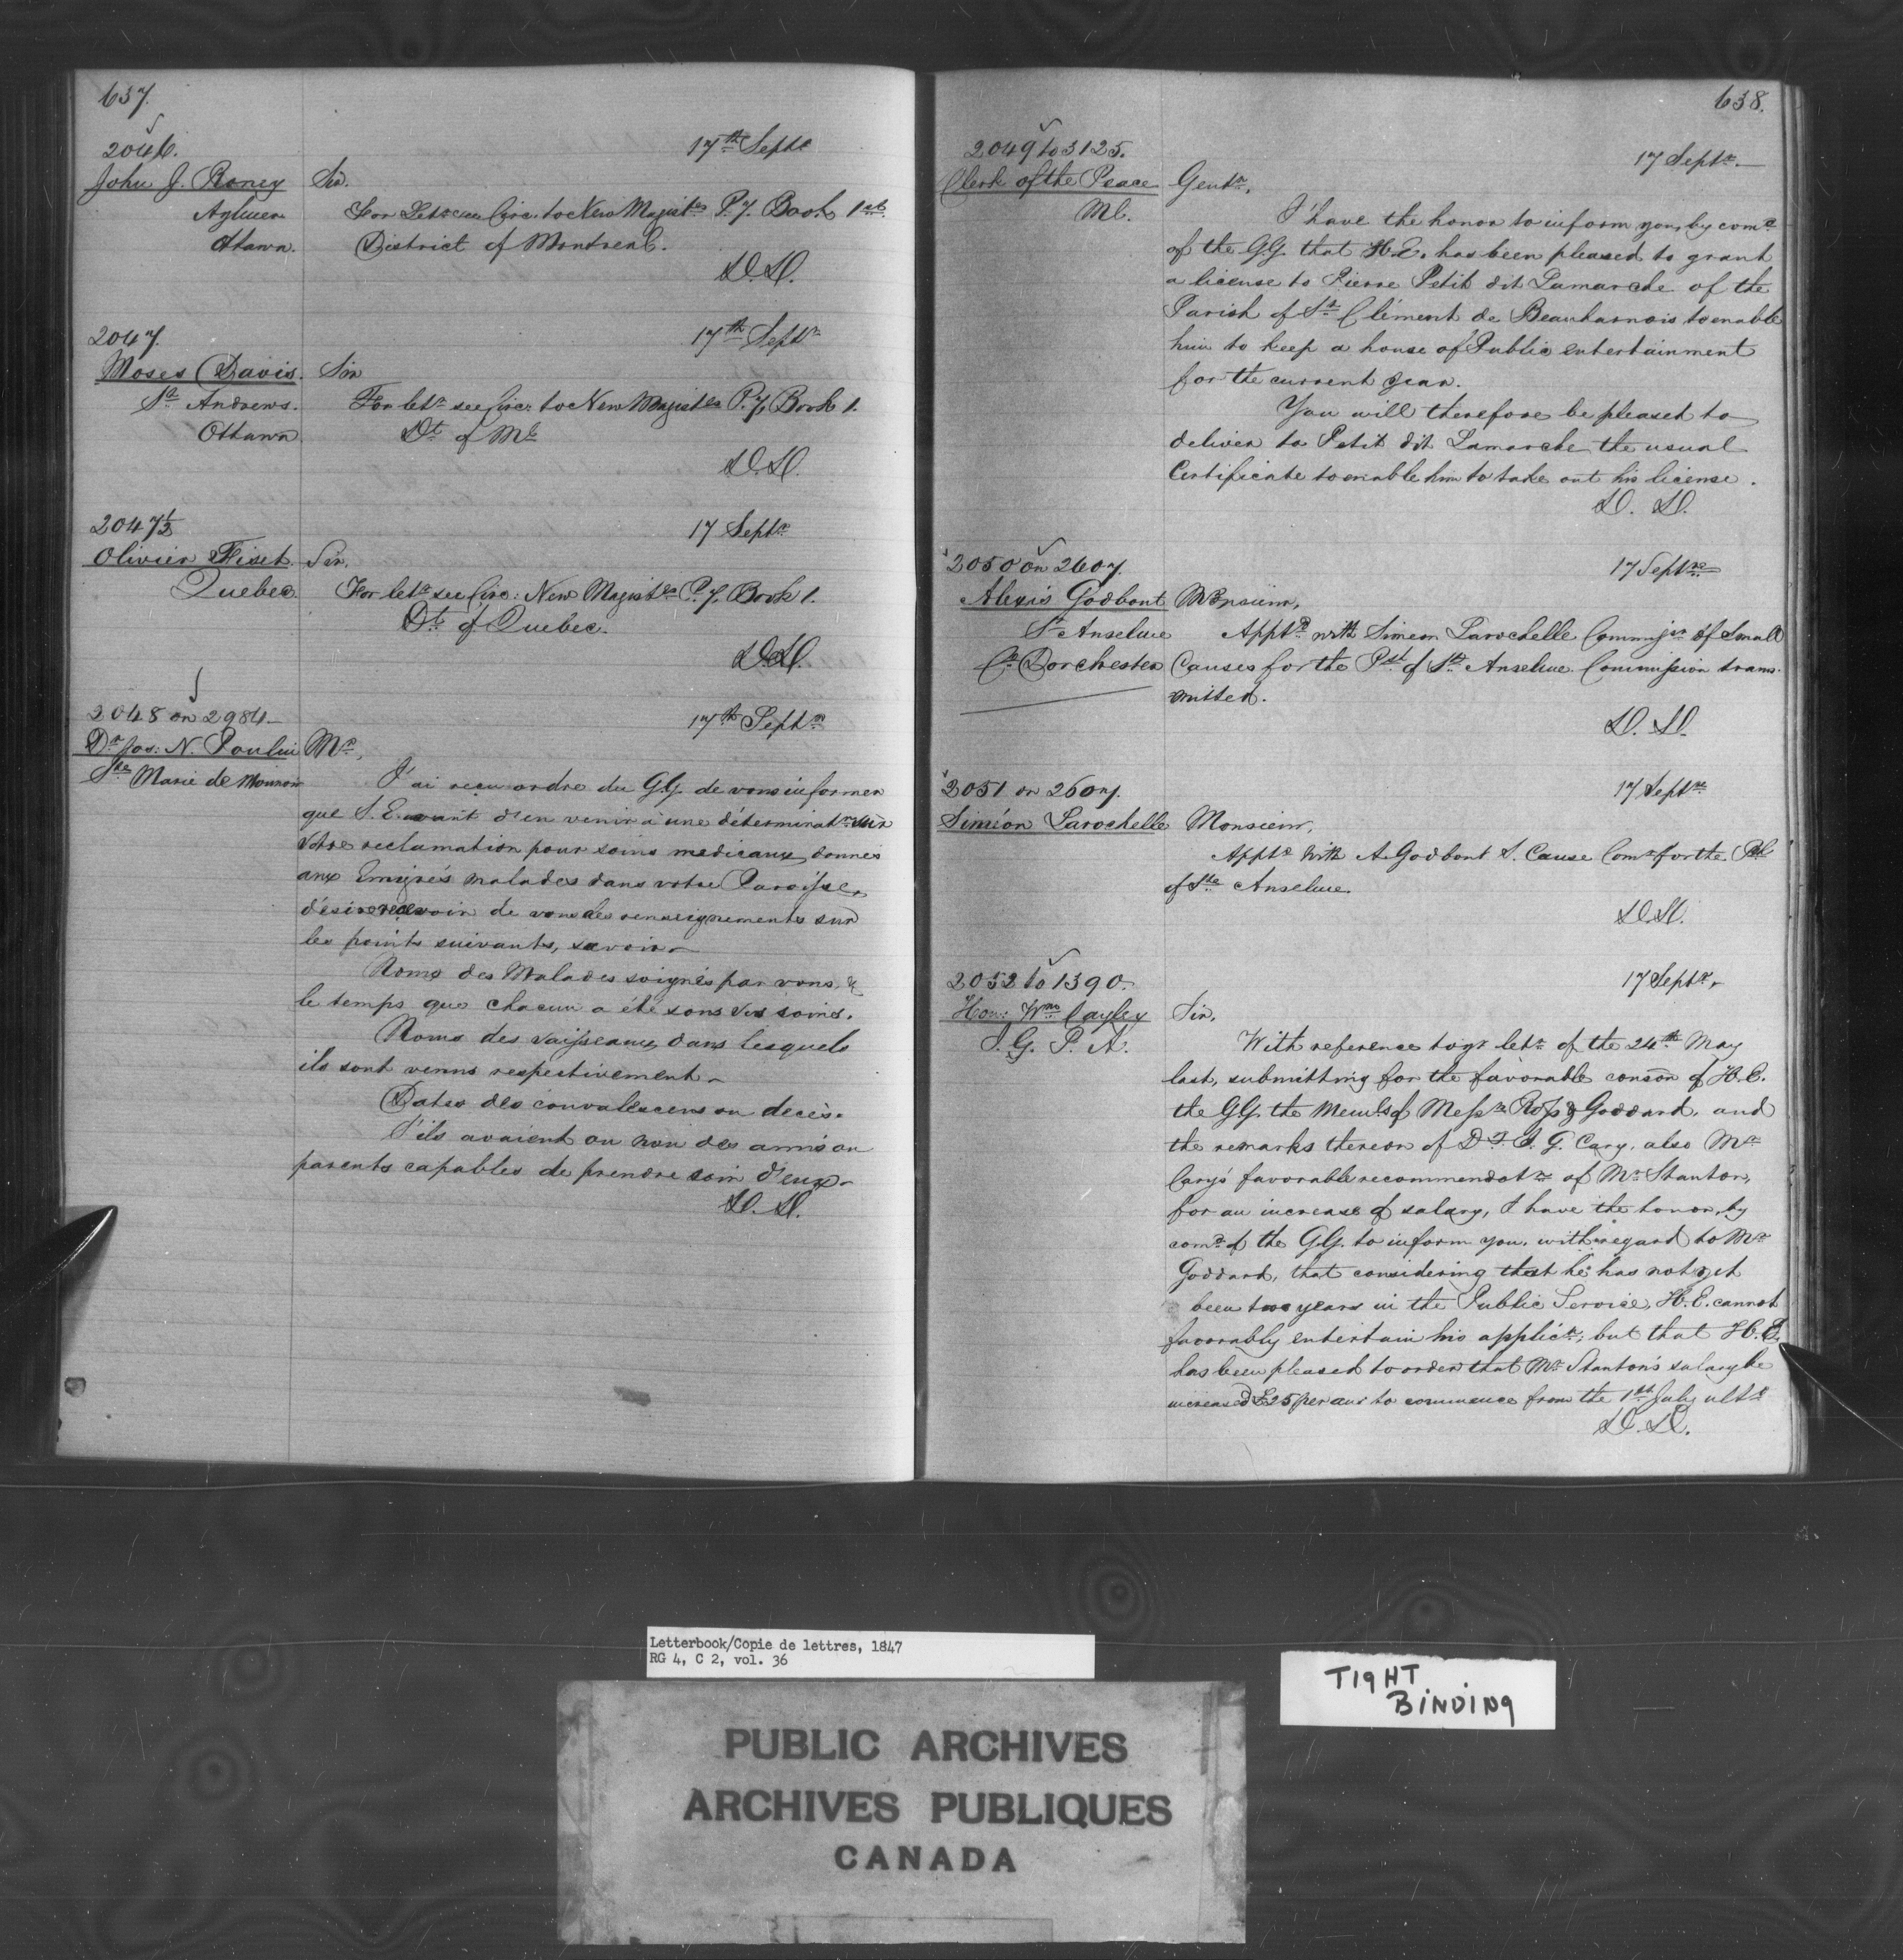 637.
2046.
17th Septr
John J. Roney
Sir.
Aylmer
For Letr see Circ. to New Magistes P.J. Book 1st
Ottawa.
District of Montreal.
D.D.
2047.
17th Septr
Moses Davis.
Sir
St Andrews.
For letr see Circ: to New Magistes P.J. Book 1.
Ottawa
Dt of Ml
D.D.
2047½
17 Septr
Olivier Fiset.
Sir,
Quebec
For letr see Circ: New Magistes P.J. Book 1.
Dt of Quebec.
D.D.
2048 on 2984
17th Septr
Dr Jos: N. Poulin
Mr,
Ste Marie de Monnoir
J'ai reçu ordre du G.G. de vous informer
que S.E. avant d'en venir à une déterminatn sur
votre reclamation pour soins medicaux donnés
aux Emigrés malades dans votre Paroisse,
désire recevoir de vous des renseignements sur
les points suivants, savoir
Noms des Malades soignés par vous, &
le temps que chacun a été sous vos soins.
Noms des vaisseaux dans lesquels
ils sont venus respectivement
Dates des convalescens ou decès.
S'ils avaient ou non des amis ou
parents capables de prendre soin d'eux
D.D.
638.
2049 to 3125.
17 Septr.
Clerk of the Peace
Gentn,
Ml.
I have the honor to inform you, by comd
of the G.G. that H.E. has been pleased to grant
a license to Pierre Petit dit Lamarche of the
Parish of St Clément de Beauharnois to enable
him to keep a house of Public entertainment
for the current year.
You will therefore be pleased to
deliver to Petit dit Lamarche the usual
Certificate to enable him to take out his license.
D.D.
2050 on 2607.
17 Septre
Alexis Godbout
Monsieur,
St Anselme
Apptd with Simeon Larochelle Commissr of Small
Co. Dorchester
Causes for the Psh of St Anselme. Commission trans-
mitted.
D.D.
2051 on 2607.
17 Septre
Siméon Larochelle
Monsieur,
Apptd with A. Godbout S. Cause Comr for the Psh
of Ste Anselme.
D.D.
2052 to 1390.
17 Septr.
Hon: Wm Cayley
Sir,
I.G. P.A.
With reference to yr letr of the 24th May
last, submitting for the favorable conson of H.E.
the G.G. the Memls of Messrs Ross & Goddard, and
the remarks thereon of D.I.G. Cary, also Mr
Cary's favorable recommendatn of Mr Stanton,
for an increase of salary, I have the honor, by
comd of the G.G. to inform you, with regard to Mr
Goddard, that considering that he has not yet
been two years in the Public Service, H.E. cannot
favorably entertain his applicn; but that H.E.
has been pleased to order that Mr Stanton's salary be
increased £25 per anr to commence from the 1st July ulto
D.D.
Letterbook/Copie de lettres, 1847
RG 4, C 2, vol. 36
TIGHT
BINDING
PUBLIC ARCHIVES
ARCHIVES PUBLIQUES
CANADA